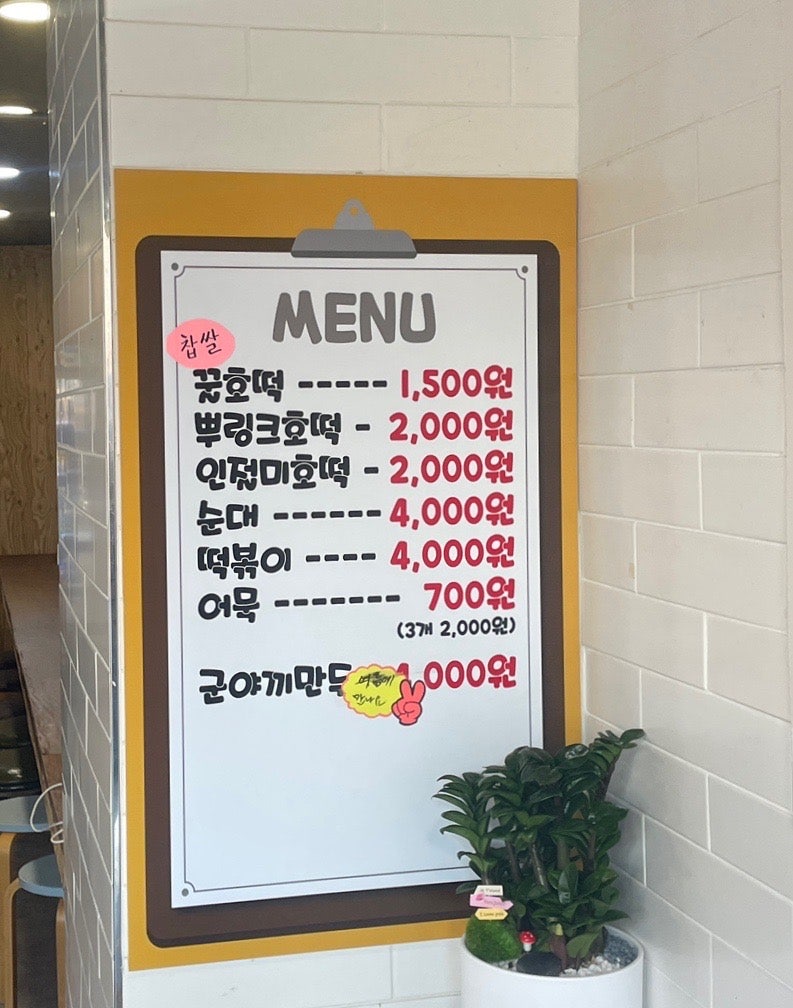 MENU
찹쌀
꿀호떡 ----- 1,500원
뿌링크호떡 - 2,000원
인절미호떡 - 2,000원
순대 ------ 4,000원
떡볶이 ---- 4,000원
어묵 ------- 700원
(3개 2,000원)
군야끼만두 ,000원